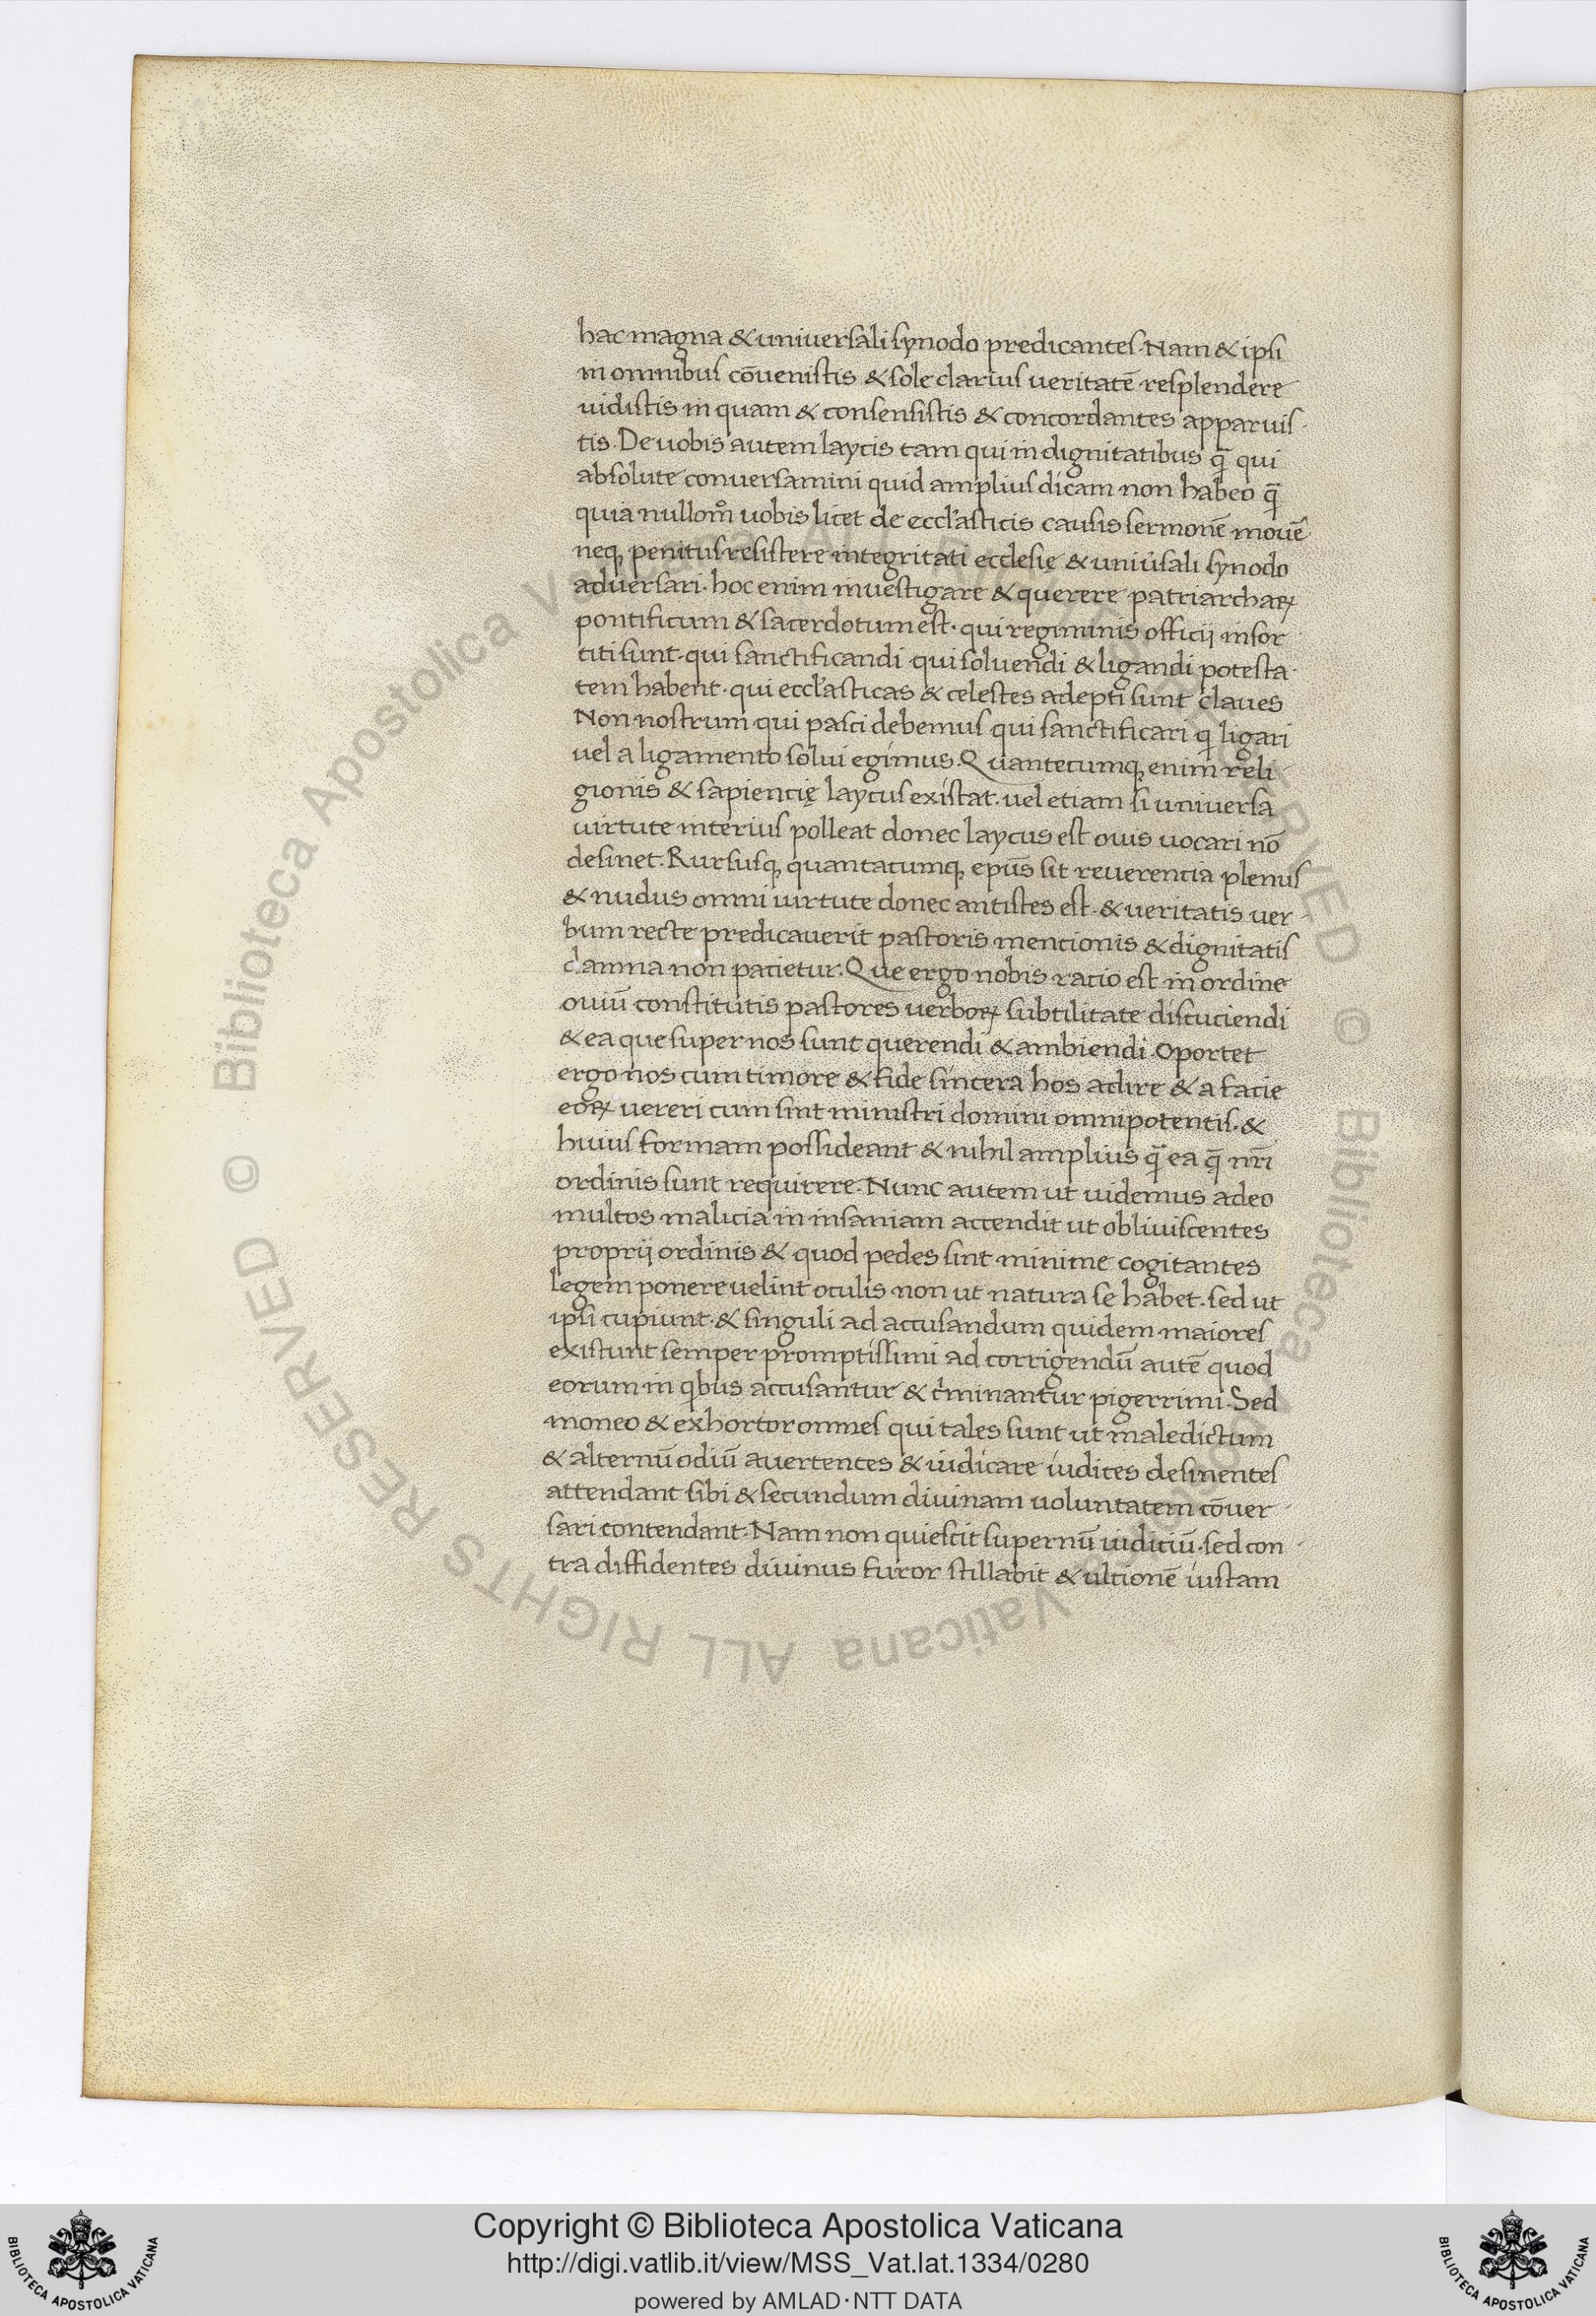 hac magna & universali synodo predicantes. Nam & ipsi
in omnibus cōvenistis & sole clarius veritatē resplendere
vidistis in quam & consensistis & concordantes apparuis-
tis. De vobis autem laycis tam qui in dignitatibus q̄ qui
absolute conversamini quid amplius dicam non habeo q̄
quia nullom̊ vobis licet de eccl'asticis causis sermonē movē
neq; penitus resistere integritati ecclesię & univ̓sali synodo
adversari. hoc enim investigare & querere patriarchaꝝ
pontificum & sacerdotum est. qui regiminis officij insor
titi sunt. qui sanctificandi qui solvendi & ligandi potesta-
tem habent. qui eccl'asticas & celestes adepti sunt claves
Non nostrum qui pasci debemus qui sanctificari qͥ ligari
vel a ligamento solvi egimus. Quantecumq; enim reli-
gionis & sapiencię laycus existat. vel etiam si universa
virtute interius polleat donec laycus est ovis vocari nō
desinet. Rursusq; quantacumq; ep̄us sit reverencia plenus
& nudus omni virtute donec antistes est. & veritatis ver-
bum recte predicaverit pastoris mencionis & dignitatis
damna non pacietur. Que ergo nobis racio est in ordine
oviū constitutis pastores verboꝝ subtilitate discuciendi
& ea que super nos sunt querendi & ambiendi. Oportet
ergo nos cum timore & fide sincera hos adire & a facie
eoꝝ vereri cum sint ministri domini omnipotentis. &
huius formam possideant & nihil amplius q̄ ea q̄ nr̄i
ordinis sunt requirere. Nunc autem ut videmus adeo
multos malicia in insaniam accendit ut obliviscentes
proprij ordinis & quod pedes sint minime cogitantes
legem ponere velint oculis non ut natura se habet. sed ut
ipsi cupiunt. & singuli ad accusandum quidem maiores
existunt semper promptissimi ad corrigendū autē quod
eorum in qͥbus accusantur & cͥminantur pigerrimi. Sed
moneo & exhortor omnes qui tales sunt ut maledictum
& alternū odiū avertentes & iudicare iudices desinentes
attendant sibi & secundum divinam voluntatem cōver-
sari contendant. Nam non quiescit supernū iudiciū. sed con-
tra diffidentes divinus furor stillabit & ultionē iustam
© Biblioteca Apostolica Vaticana ALL RIGHTS RESERVED © Biblioteca Apostolica Vaticana ALL RIGHTS RESERVED
Copyright © Biblioteca Apostolica Vaticana
http://digi.vatlib.it/view/MSS_Vat.lat.1334/0280
powered by AMLAD·NTT DATA
BIBLIOTECA APOSTOLICA VATICANA
BIBLIOTECA APOSTOLICA VATICANA